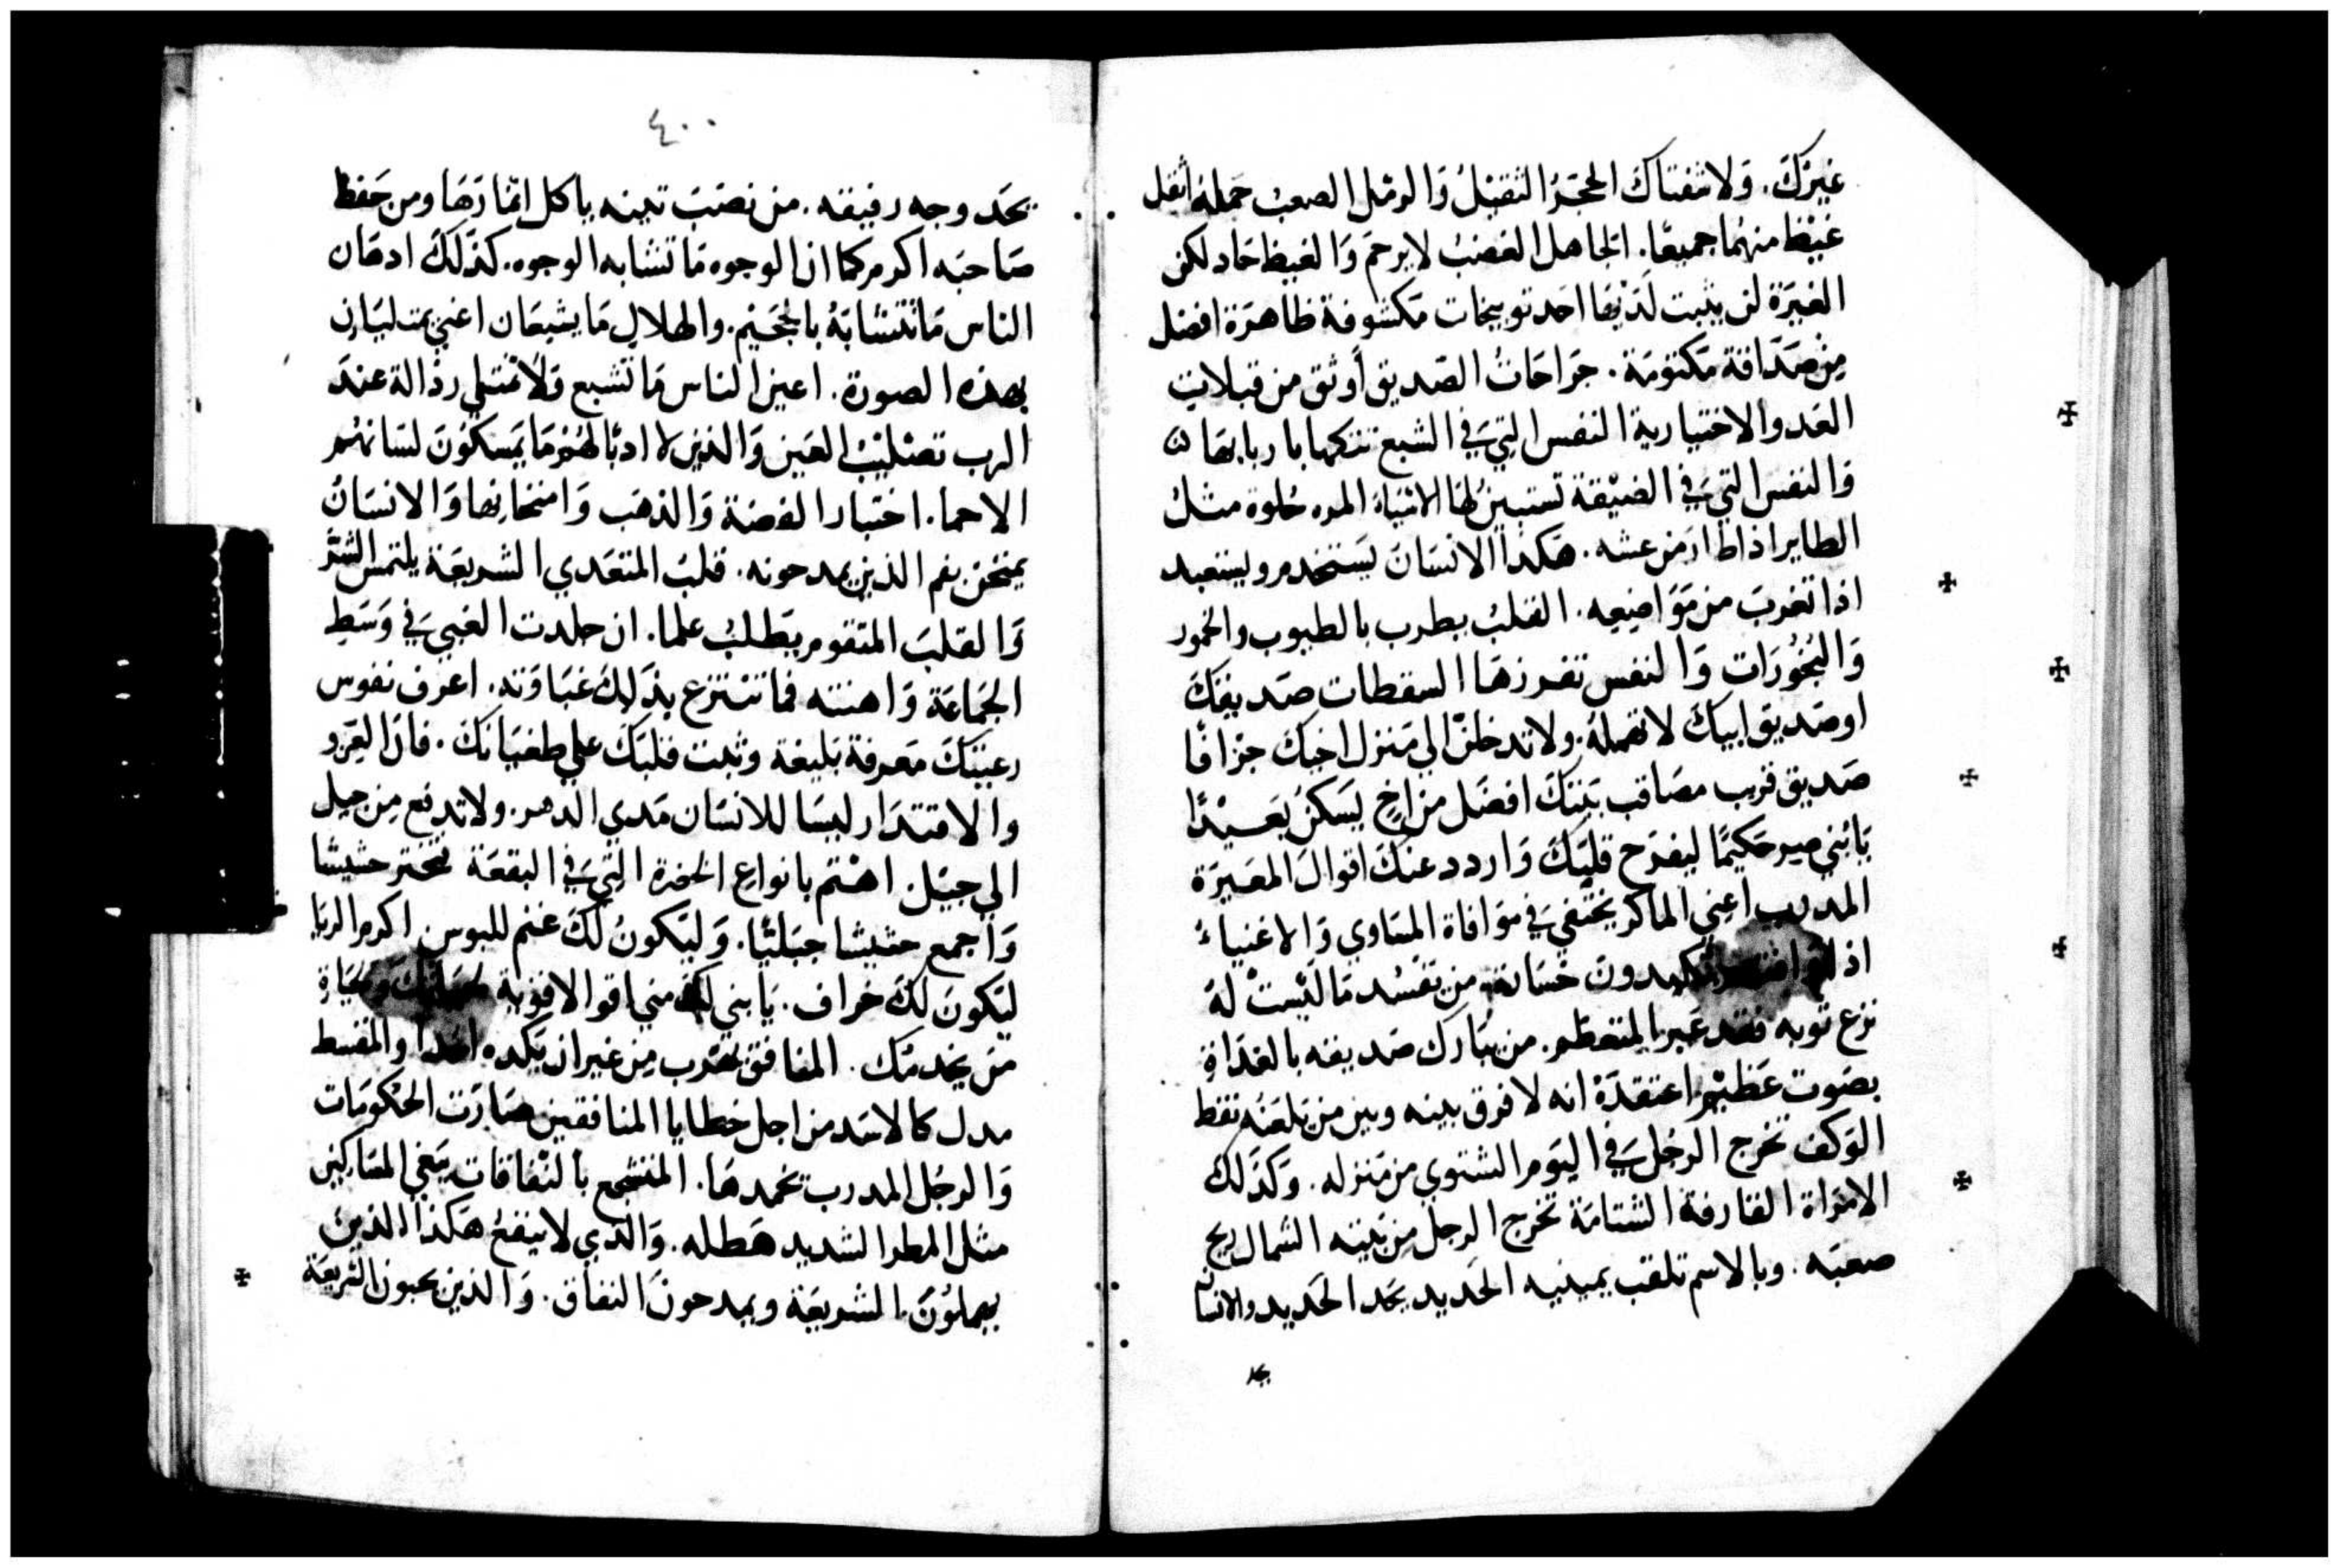 غيرَكَ. وَلا شفتاكَ الحجَرُ الثقيْلُ وَالرمْل الصعبُ حَملهُ اثقل
غيْظ منهُما جميعًا. الجاهل الغضبُ لا يرحمَ وَالغيظ حَاد لكن
الغيرَة لن يثبت لَديْهَا احَد توبيخات مَكشوفة ظاهرَة افضل
مِن صَدَاقة مَكتومَة. جرَاحَاتُ الصَديق أوثق من قبلات
العَدو الاختيارية النفس التِيَ في الشبع تتكمها باربابها
وَالنفس التيَ في الضيْقة تستبينُ لهَا الاشيَاءُ المره حُلوة مثلُ
الطاير اذا طارَ من عشه. هَكذا الانسَان يَستخدم ويستعبد
اذا تغربَ من مَوَاضيعِه. القلبُ يطرب بالطيوب والخمور
وَالبُخُورَات وَالنفس تفرزهَا السقطات صَديقكَ
اوصَديق ابيكَ لا تهملهُ. ولا تدخلنْ الي مَنزل اخيكَ جزَافًا
صَديق قريب مصَاقب بَيتكَ افضَل من اخٍ يَسكنُ بَعيْدًا
يَابُني صِير حَكيمًا ليفرَح قلبَكَ وَاردد عنكَ اقوالَ المعَيرَة
المدرب اعني الماكر يختفيَ في موَافاة المسَاوي وَالاغنياءُ
اذا يكبدونَ خسَانة من تفسُد مَا لَيْستْ لهُ
نزع ثوبه فقد عَبر المتعظم. من يُبَارك صَديقه بالغدَاة
بصَوت عَظيْم اعتقدَهُ انه لا فرق بينه وبين من يَلعَنهُ نقط
الوَكف تخرج الرجُل َفي اليَوم الشتوي من مَنزله. وَكذلكَ
الامرَاة القارفة الشتامَة تخرج الرجل مِن بَيته الشمال ريح
صعبَه. وبالاسم تلقب يمينيه الحَديد يحَد الحَديد والانسَان
يحد
٤٠٠
يحَد وجه رفيقه. من نصَبَ تينه ياكل اثمَارَهَا ومن حَفظ
صَاحبَه اكرم كما ان الوجوه مَا تشابه الوجوه. كذَلكَ ادهَان
الناس مَا تتشابَهُ بالجَحيْم. والهلال مَا يشبعَان اعني يمتليَان
بهذه الصورَة. اعين الناس مَا تشبع وَلا تمتلي رذالة عندَ
الرب تصْليْبُ العَين وَالذين لا ادبًا لهُم مَا يَمسكوُنَ لسَانهُم
الاحما. اختبار الفضة وَالذهَب وَامتحَانها وَالانسَانُ
يمتحَن بفم الذين يمدحونه. قلبُ المتعَدي الشريعَة يلتمس الشرَّ
وَالقلبَ المتقوم يطلبُ علما. ان جلدت الغبيَ في وَسَطِ
الجَمَاعَة وَاهنته فما تنتزع بذلكَ غبَاوَته. اعرف نفوس
رعيتكَ مَعرفة بَليغة وثبت قلبَكَ علي طغيَانكَ. فان العِز و
والاقتدَار ليسَا للانسَان مَدي الدهر. ولا تدفع مِن جيل
الي جيْل. اهْتم بانواع الخضرة التيَ في البقعَة تحتز حشيشا
وَاجمع حشيشا جبَليًا. وَليَكونُ لكَ غنم للبوس اكرم الربَا
ليَكونَ لكَ خراف. يَابني لكَ مني اقوالا قويَة لحيَاتكَ وَحيَاة
مَن يخدمكَ. المنافق يَهْرب مِن غير ان يَكده احَدا والمقسط
مدل كالاسَد من اجل خطايا المنافقين صَارَت الحكومَات
وَالرجُل المدرب يخمدهَا. المتشجع بالنفاقات يَبغي المسَاكين
مثل المطر الشديد هَطله. وَالذي لا ينفعُ هَكذا الذين
يهملوُنَ الشريعَة ويمدحونَ النفاق. وَالذين يحبون الشريعَة